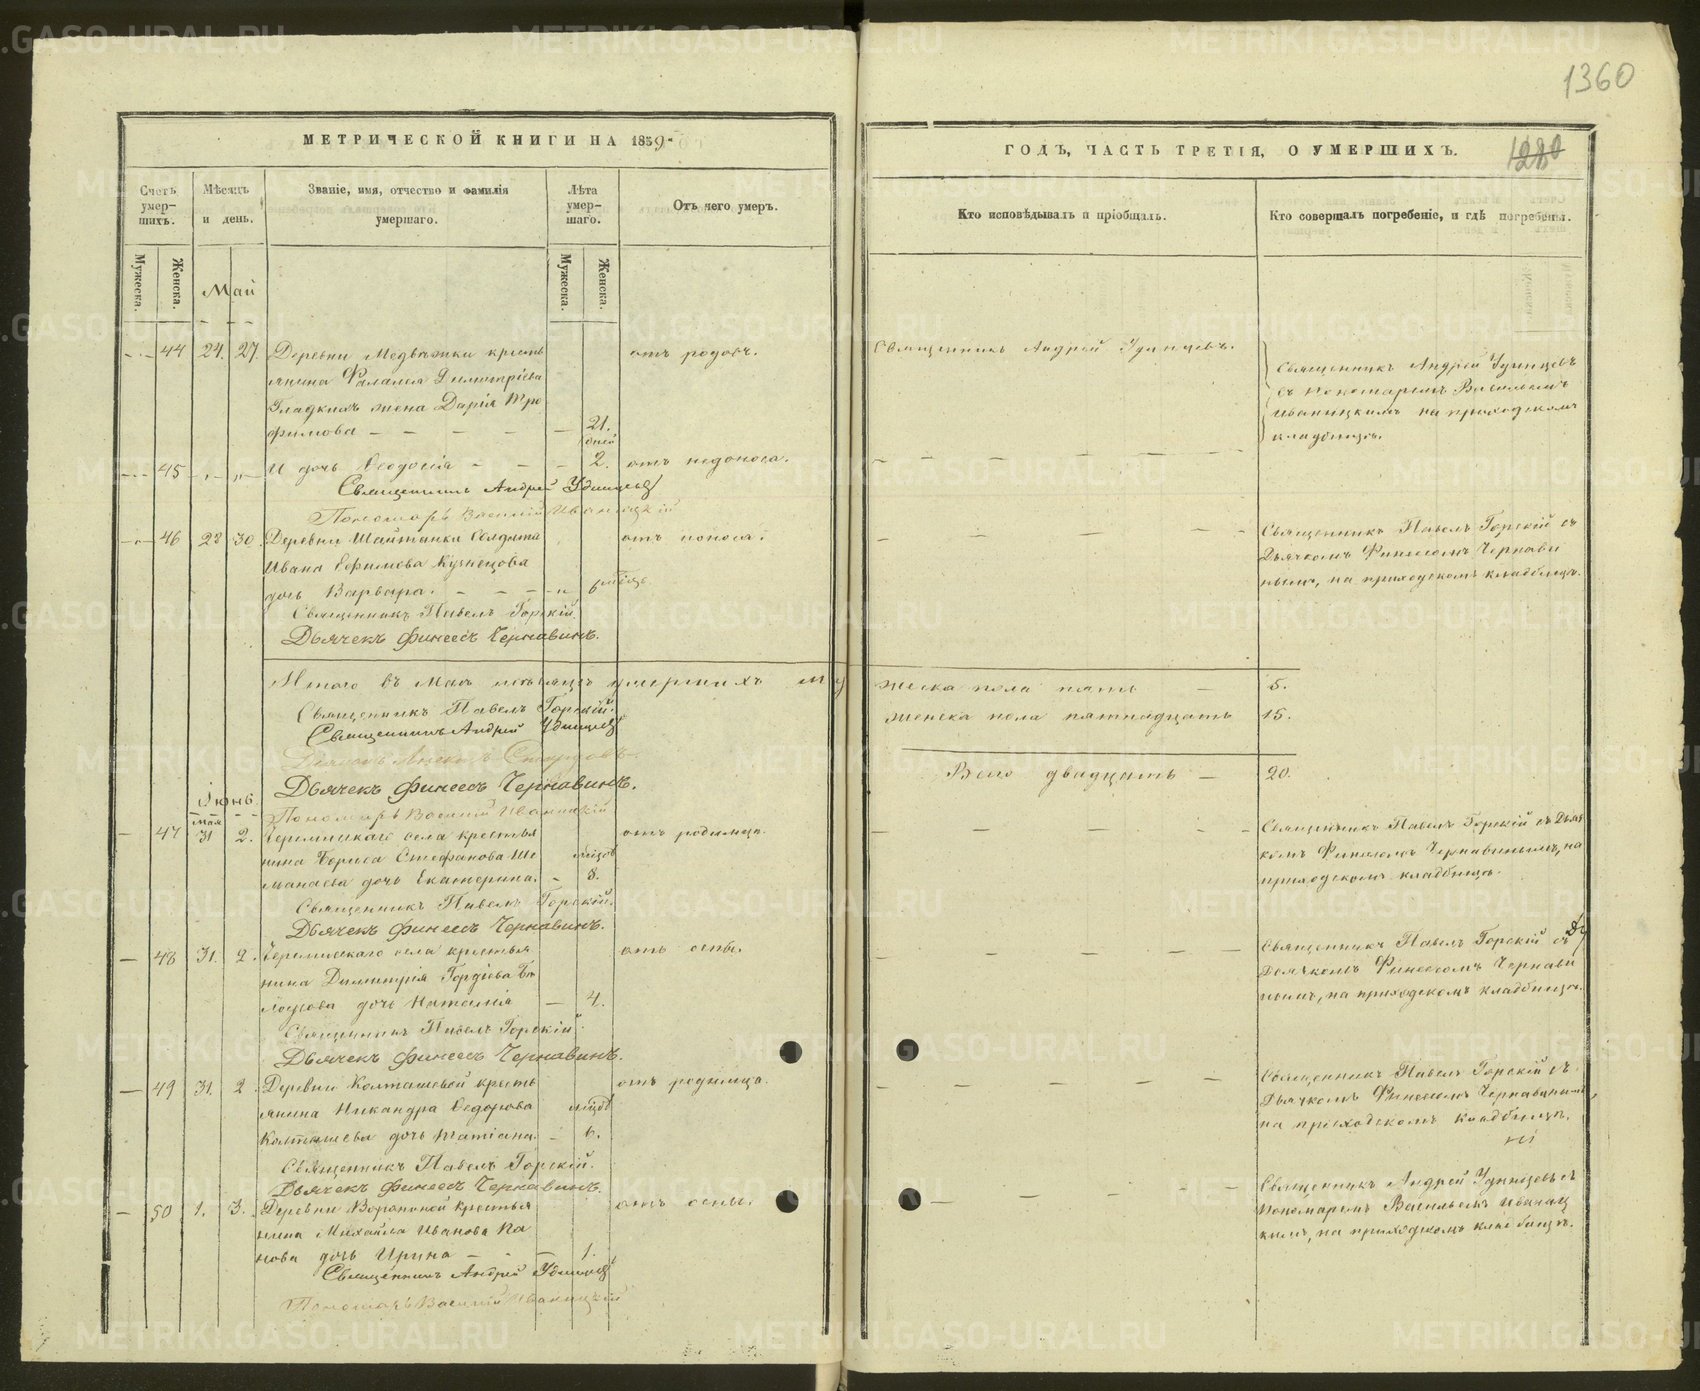 1360
МЕТРИЧЕСКОЙ КНИГИ НА 1859
ГОДЪ, ЧАСТЬ ТРЕТІЯ, О УМЕРШИХЪ.
1280
Счетъ умер-шихъ.
Мѣсяцъ и день.
Званіе, имя, отчество и фамилія умершаго.
Лѣта умер-шаго.
Отъ чего умеръ.
Кто исповѣдывалъ и пріобщалъ.
Кто совершалъ погребеніе, и гдѣ погребены.
Мужеска.
Женска.
Май
Мужеска.
Женска.
44 24. 27. Деревни Медвѣжки кресть
янина Фалалея Димитріева
Гладкихъ жена Дарія Тро
фимова 21.
отъ родовъ.
Священникъ Андрей Удинцевъ.
Священникъ Андрей Удинцевъ
съ пономаремъ Васильемъ
Иваницкимъ на приходскомъ
кладбищѣ.
45 И дочь Ѳеодосія дней 2. отъ недоноса.
Священникъ Андрей Удинцевъ
Пономарь Василій Иваницкій
46 28 30. Деревни Шайтанки Солдата
Ивана Ефимова Кузнецова
дочь Варвара. 6 мѣсц.
отъ поноса.
Священникъ Павелъ Горскій съ
Дьячкомъ Финеесомъ Чернави
нымъ, на приходскомъ кладбищѣ.
Священникъ Павелъ Горскій.
Дьячекъ Финеесъ Чернавинъ.
Итого въ Маѣ мѣсяцѣ умершихъ му
жеска пола пять 5.
женска пола пятнадцать 15.
Всего двадцать 20.
Священникъ Павелъ Горскій.
Священникъ Андрей Удинцевъ
Дьячекъ Финеесъ Чернавинъ.
Пономарь Василій Иваницкій
Іюнь
мая
47 31 2. Черемискаго села крестья
нина Бориса Стефанова Ше
манаева дочь Екатерина. мѣсцов 8.
отъ родимца.
Священникъ Павелъ Горскій съ Дьяч
комъ Финеесомъ Чернавинымъ, на
приходскомъ кладбищѣ.
Священникъ Павелъ Горскій.
Дьячекъ Финеесъ Чернавинъ.
48 31. 2. Черемисскаго села крестья
нина Димитрія Гордѣева
дочь Наталія 4.
отъ оспы.
Священникъ Павелъ Горскій съ
Дьячкомъ Финеесомъ Чернави
нымъ, на приходскомъ кладбищѣ.
Священникъ Павелъ Горскій.
Дьячекъ Финеесъ Чернавинъ.
49 31. 2. Деревни Колташевой кресть
янина Никандра Ѳедорова
Колташева дочь Татіана. мѣсцов 6.
отъ родимца.
Священникъ Павелъ Горскій съ
Дьячкомъ Финеесомъ Чернавинымъ
на приходскомъ кладбищѣ.
Священникъ Павелъ Горскій.
Дьячекъ Финеесъ Чернавинъ.
50 1. 3. Деревни Ворониной крестья
нина Михаила Иванова Па
нова дочь Ирина 1.
отъ оспы.
Священникъ Андрей Удинцевъ съ
Пономаремъ Васильемъ Иваниц
кимъ, на приходскомъ кладбищѣ.
Священникъ Андрей Удинцевъ
Пономарь Василій Иваницкій
METRIKI.GASO-URAL.RU